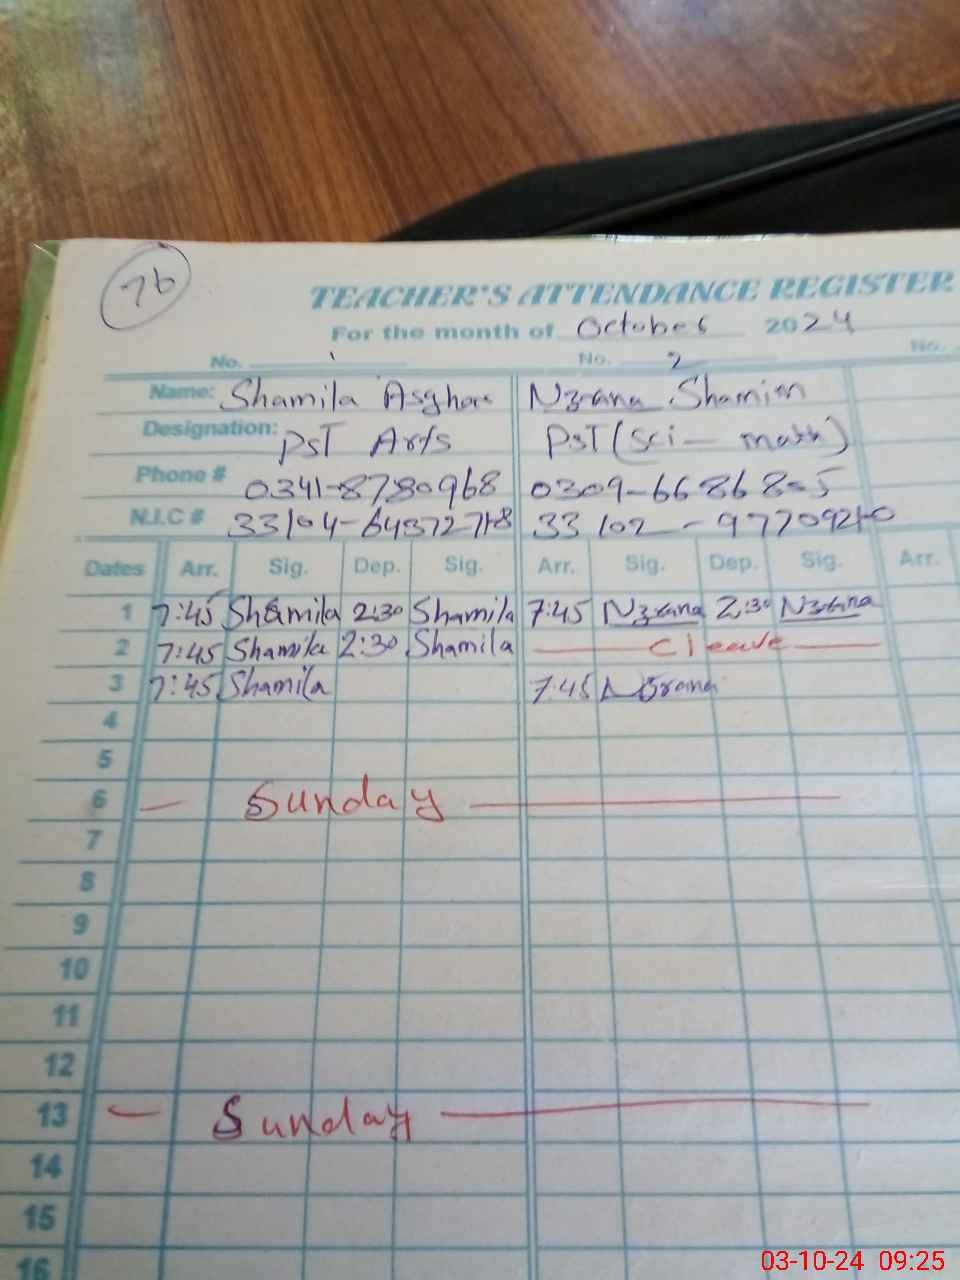 76
TEACHER'S ATTENDANCE REGISTER
For the month of October 2024
No. 1 No. 2 No.
Name: Shamila Asghar Nzrana
Designation: PST Arts PST (Sci - math)
Phone # 0341-8780968
N.I.C #
Dates Arr. Sig. Dep. Sig. Arr. Sig. Dep. Sig. Arr.
1 7:45 Shamila 2:30 Shamila 7:45 Nzrana 2:30 Nzrana
2 7:45 Shamila 2:30 Shamila C leave
3 7:45 Shamila 7:45 Nzrana
4
5
6 Sunday
7
8
9
10
11
12
13 Sunday
14
15
16
03-10-24 09:25